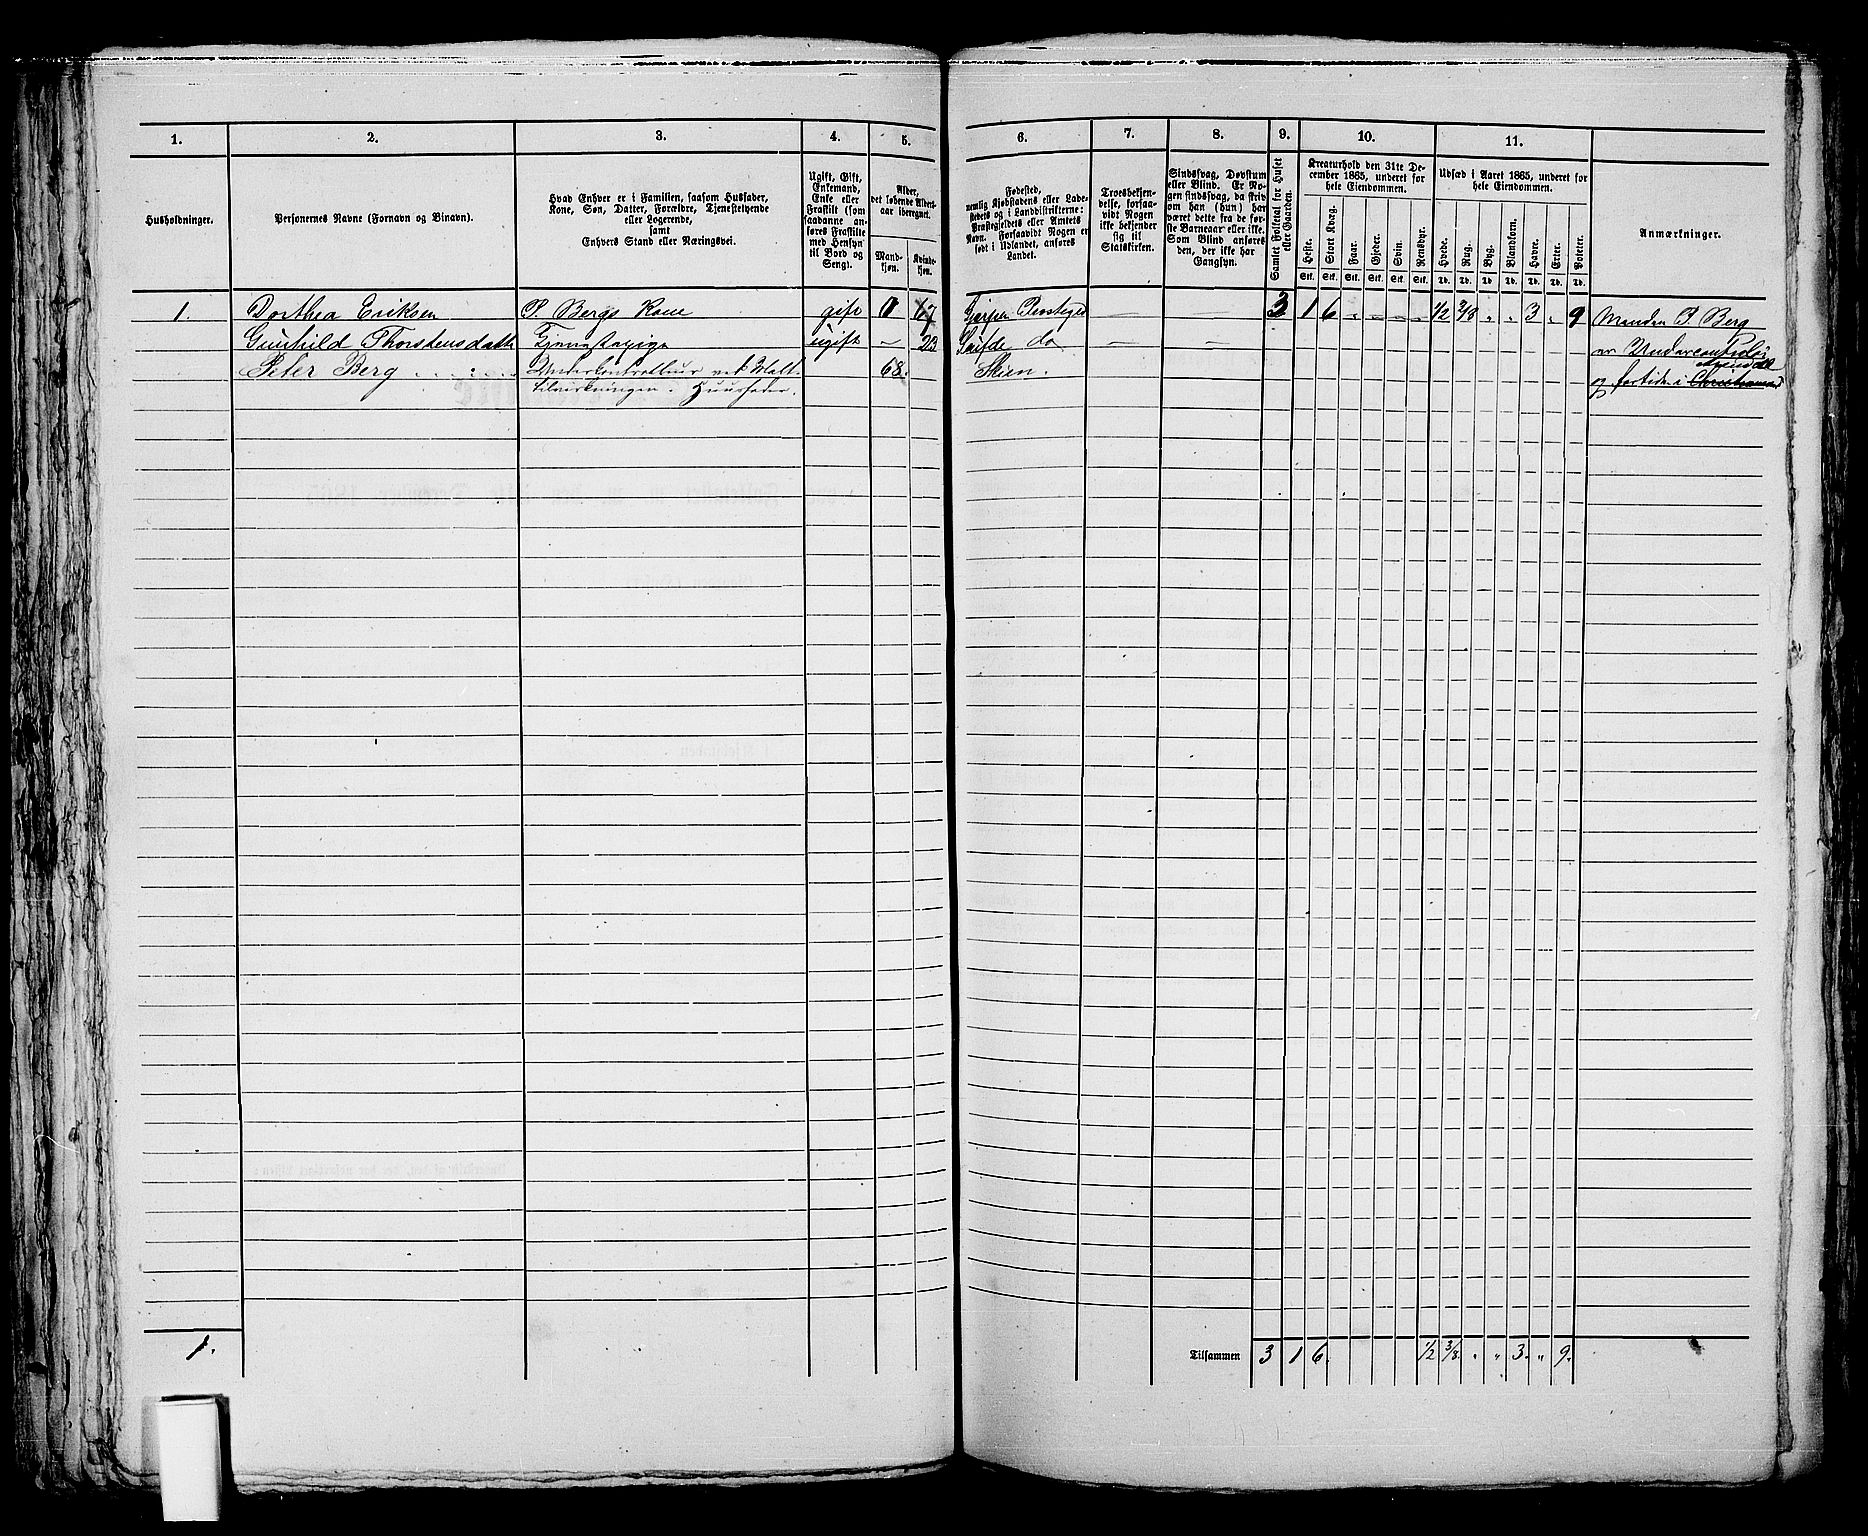 1. 2. 3. 4. 5. 6. 7. 8. 9. 10. 11.
Husholdninger.
Personernes Navne (Fornavn og Binavn).
Hvad Enhver er i Familien, saasom Husfader,
Kone, Søn, Datter, Forældre, Tjenestetyende
eller Logerende,
samt
Enhvers Stand eller Næringsvei.
Ugift, Gift,
Enkemand,
Enke eller
Fraskilt (som
saadanne an-
føres Fraskilte
med Hensyn
til Bord og
Seng).
Alder,
det løbende Alders-
aar iberegnet.
Mand-
kjøn.
Kvinde-
kjøn.
Fødested,
nemlig Kjøbstadens eller Lade-
stedets og i Landdistrikterne:
Præstegjeldets eller Amtets
Navn. Forsaavidt Nogen er
født i Udlandet, anføres
Landet.
Troesbekjen-
delse, forsaa-
vidt Nogen
ikke bekjender
sig til
Statskirken.
Sindssvag, Døvstum
eller Blind. Er No-
gen sindssvag, da skriv
om han (hun) har
været dette fra de før-
ste Barneaar eller ikke.
Som Blind anføres
den, der ikke har
Gangsyn.
Samlet Folketal for Huset
eller Gaarden.
Kreaturhold den 31te De-
cember 1865, underet for
hele Eiendommen.
Heste. Stort Kvæg. Faar. Gjeder. Svin. Rensdyr.
Stk. Stk. Stk. Stk. Stk. Stk.
Udsæd i Aaret 1865, underet for
hele Eiendommen.
Hvede. Rug. Byg. Blandkorn. Havre. Erter. Poteter.
Td. Td. Td. Td. Td. Td. Td.
Anmærkninger.
1. Dorthea Eriksen P. Bergs Kone gift 67 Gjerpen 3 1 6 1/2 3/8 " " 3 " 9 Manden P. Berg
Gunhild Thorstensdatter ugift - 23 do er
Peter Berg Underkontrolleur ved Malt- 68. Skien.
tilvirkningen. Huusfader. og fortiden i Christiansand
1. Tilsammen 3 1 6. 1/2 3/8 " " 3. " 9.